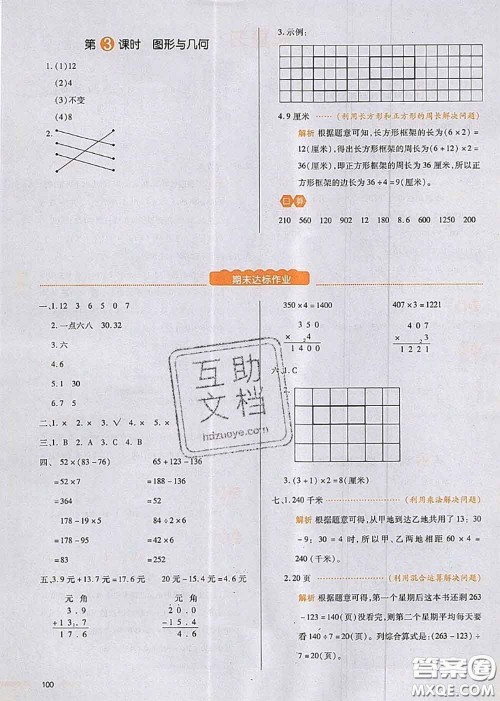 第3课时 图形与几何
1.(1)12
(2)4
(3)不变
(4)8
2.
3.示例:
4.9厘米 (利用长方形和正方形的周长解决问题)
解析 根据题意可知,长方形框架的长为(6×2)=
12(厘米),得出长方形框架的周长为(6+12)×2=
36(厘米),即正方形框架的周长为36厘米,所以正
方形框架的边长为36÷4=9(厘米)。
口算
210 560 120 902 12 180 8.6 600 1250 200
期末达标作业
一、1.12 3 6 5 0 7
2.一点六八 30.32
3.六
4.6
5.1 30
6.
二、1.× 2.× 3.√ 4.×
三、1.B 2.A 3.C 4.B
四、 52×(83-76) 65+123-136
=52×7 =188-136
=364 =52
178-19×5 (233-97)÷2
=178-95 =136÷2
=83 =68
172+9×9 188-(23+112)
=172+81 =188-135
=253 =53
五、3.9元+13.7元=17.6元 20元-15.4元=4.6元
元 角 元 角
3.9 20.0
+13.7 -15.4
17.6 4.6
350×4=1400 407×3=1221
350 407
× 4 × 3
1400 1221
六、1.C
2.
3.(3+1)×2=8(厘米)
七、1.240千米 (利用乘法解决问题)
解析 根据题意可得,从甲地到乙地共用了13:30
-9:30=4(时),所以甲、乙两地之间的距离60×4=
240(千米)。
2.20页 (利用混合运算解决问题)
解析 根据题意可得,第一个星期后这本书还剩263
-123=140(页)没看完,则第二个星期平均每天要
看140÷7=20(页)。列综合算式是:(263-123)÷
7=20(页)
100
互助
文档
hdzuoye.com
答案圈
MXQE.COM